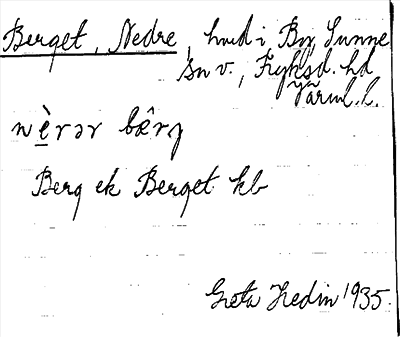 Berget, Nedre, hmd i By, Sunne
sn v., Fryksd. hd
Värml. l.
nè̲rər bæ̂rj
Berg ek Berget kb
Greta Hedin 1935.